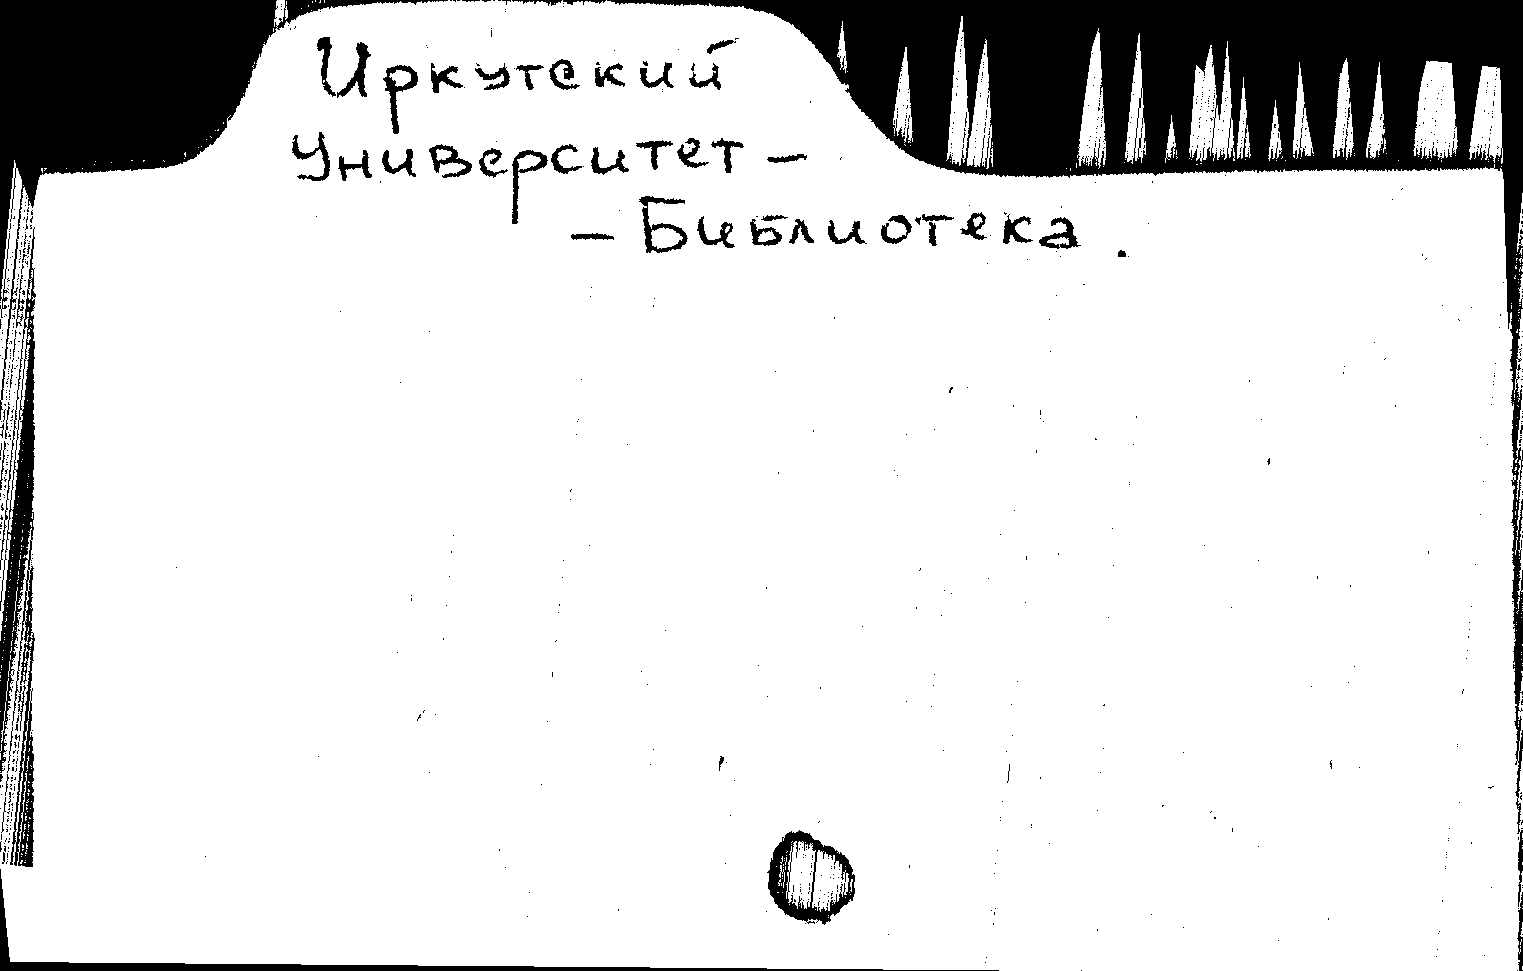 Иркутский
Университет –
– Библиотека.